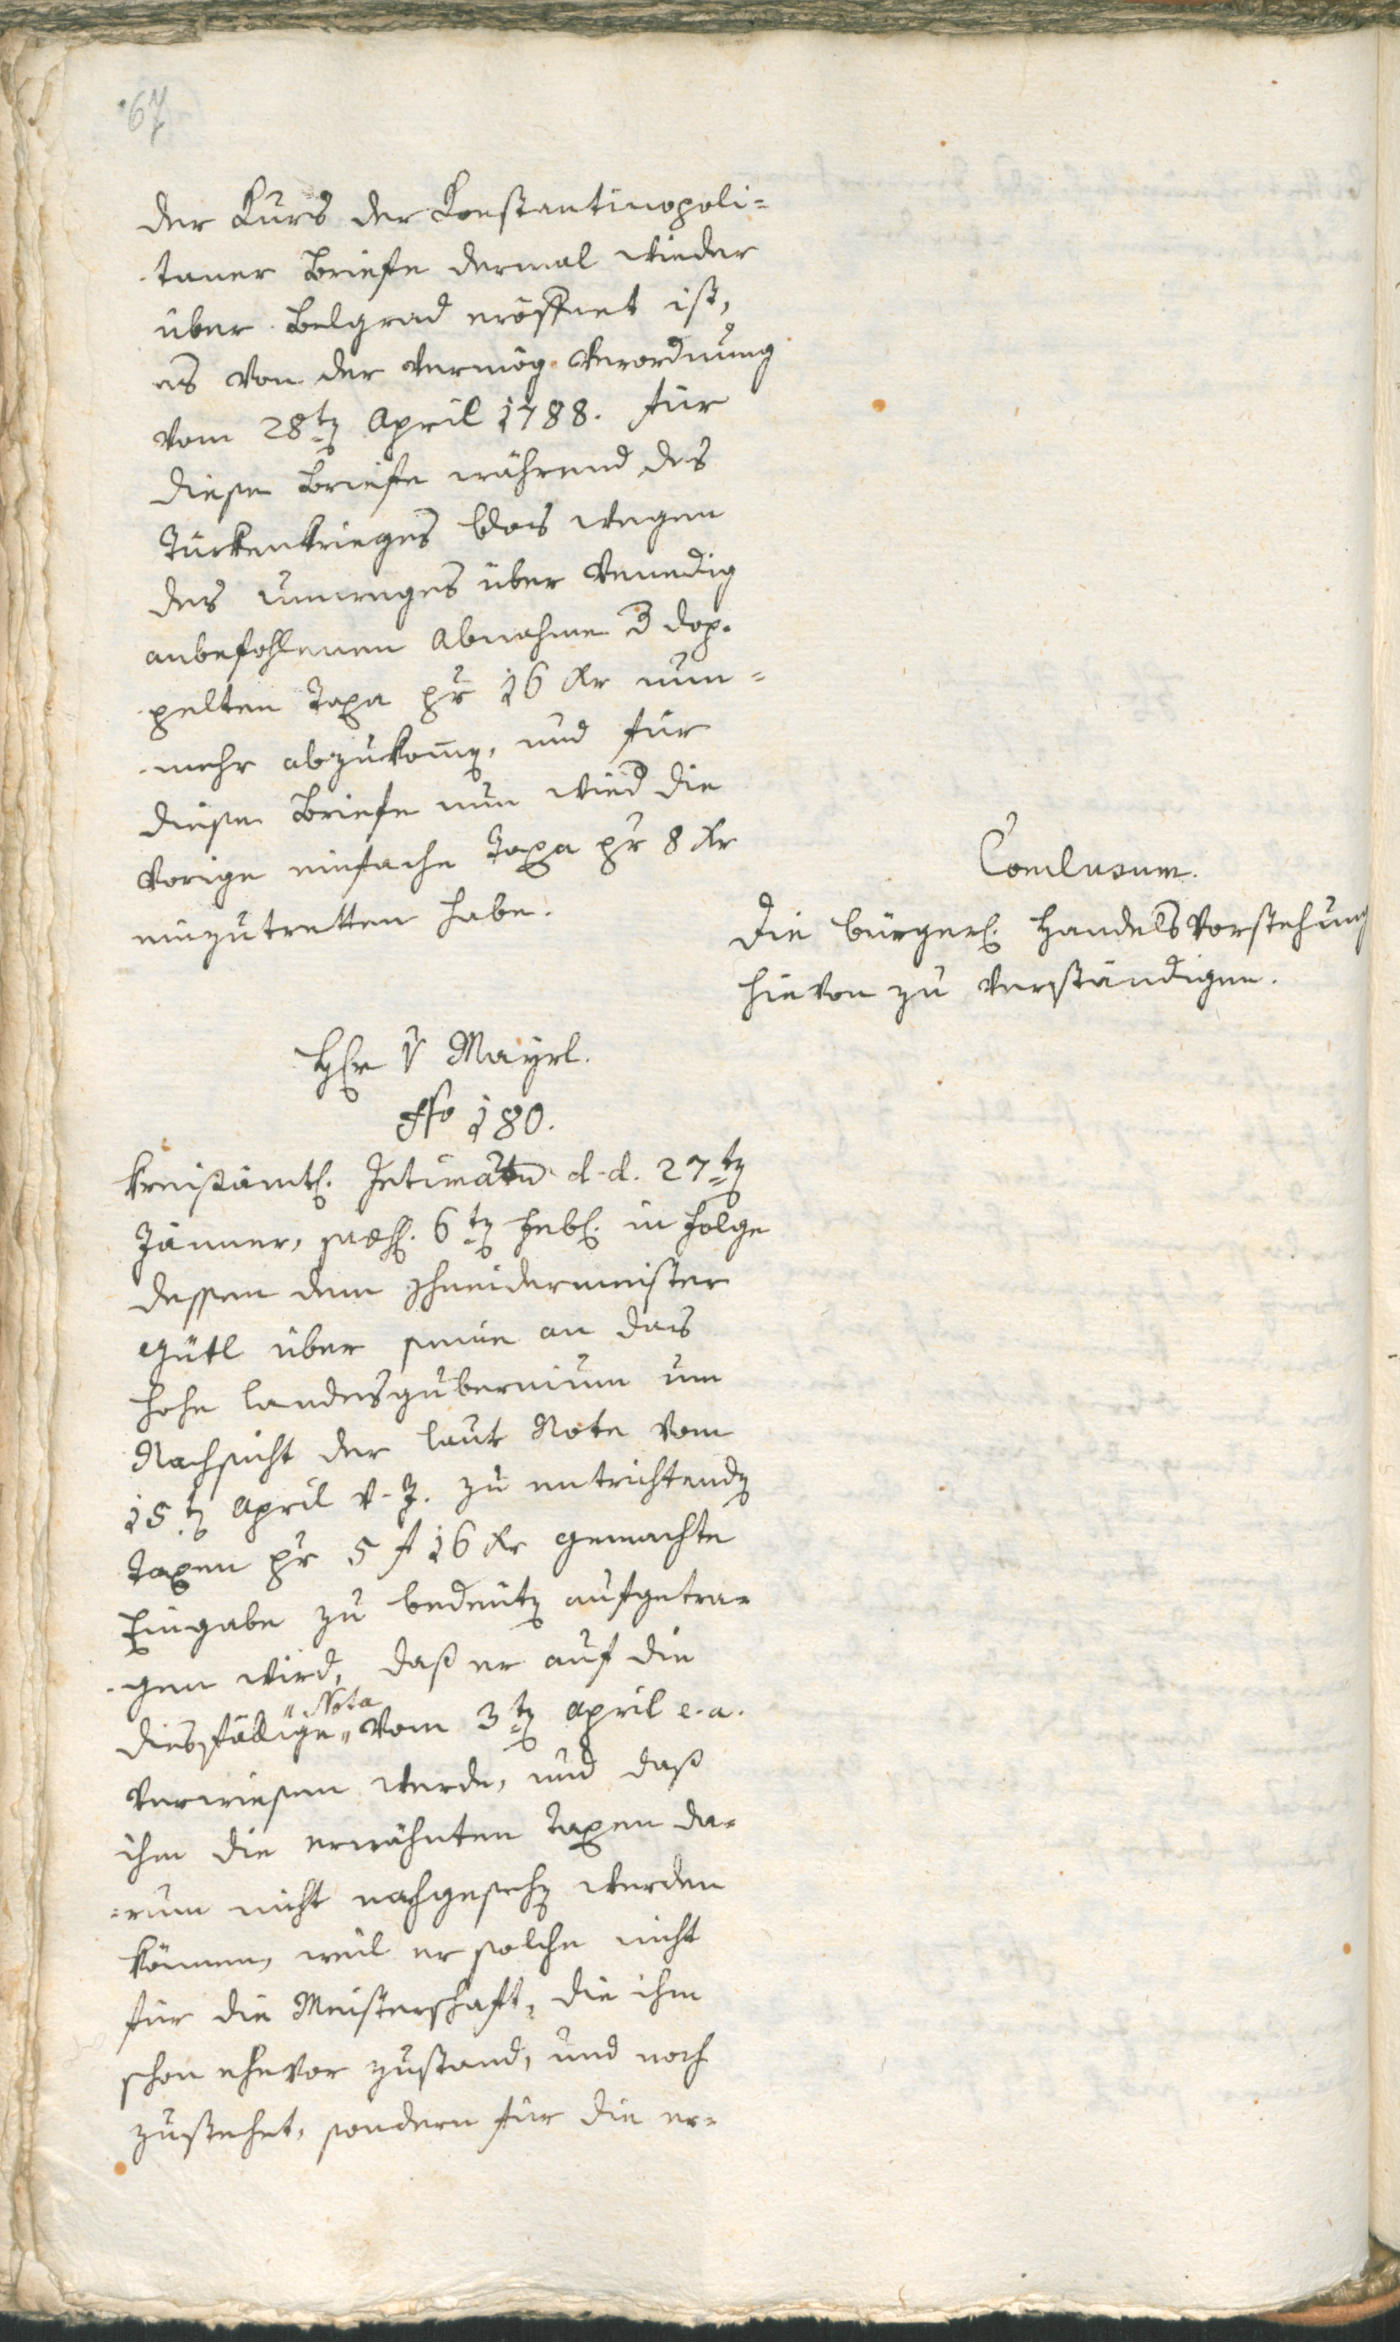 67
der Kurs der Constantinopoli=
taner Briefe dermal wieder
über Belgrad eröffnet ist,
es von der vermög Verordnung
vom 28ten April 1788. für
diese Briefe während des
Türkenkrieges blos wegen
des Umweges über Venedig
anbefohlenen Abnahme der dop=
pelten Taxa pr 16 Kr nun=
mehr abzukomen, und für
diese Briefe nun wied die
vorige einfache Taxa pr 8 Kr
einzutretten habe.
Conclusum.
Die bürgerl. Handels Vorstehung
hievon zu verständigen.
Hr v Mayrl.
No 180.
Kreisämtl. Intimatum d. d. 27ten
Jänner, praes. 6ten Hebl. in Folge
dessen dem Schneidermeister
Gütl über seine an das
hohe Landesgubernium um
Nachsicht der laut Nota vom
15ten April v. J. zu entrichtenden
Taxen pr 5 f 16 Kr gemachte
Eingabe zu bedeuten aufgetra=
gen wird, daß er auf die
diesfällige " Nota " vom 3ten April e. a.
verwiesen werde, und daß
ihm die erwähnten Taxen da=
=rum nicht nachgesehen werden
können, weil er solche nicht
für die Meisterschaft, die ihm
schon ehevor zustand, und noch
zustehet, sondern für die er=